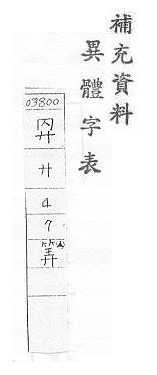 補充資料
異體字表
03800
廾
4
7